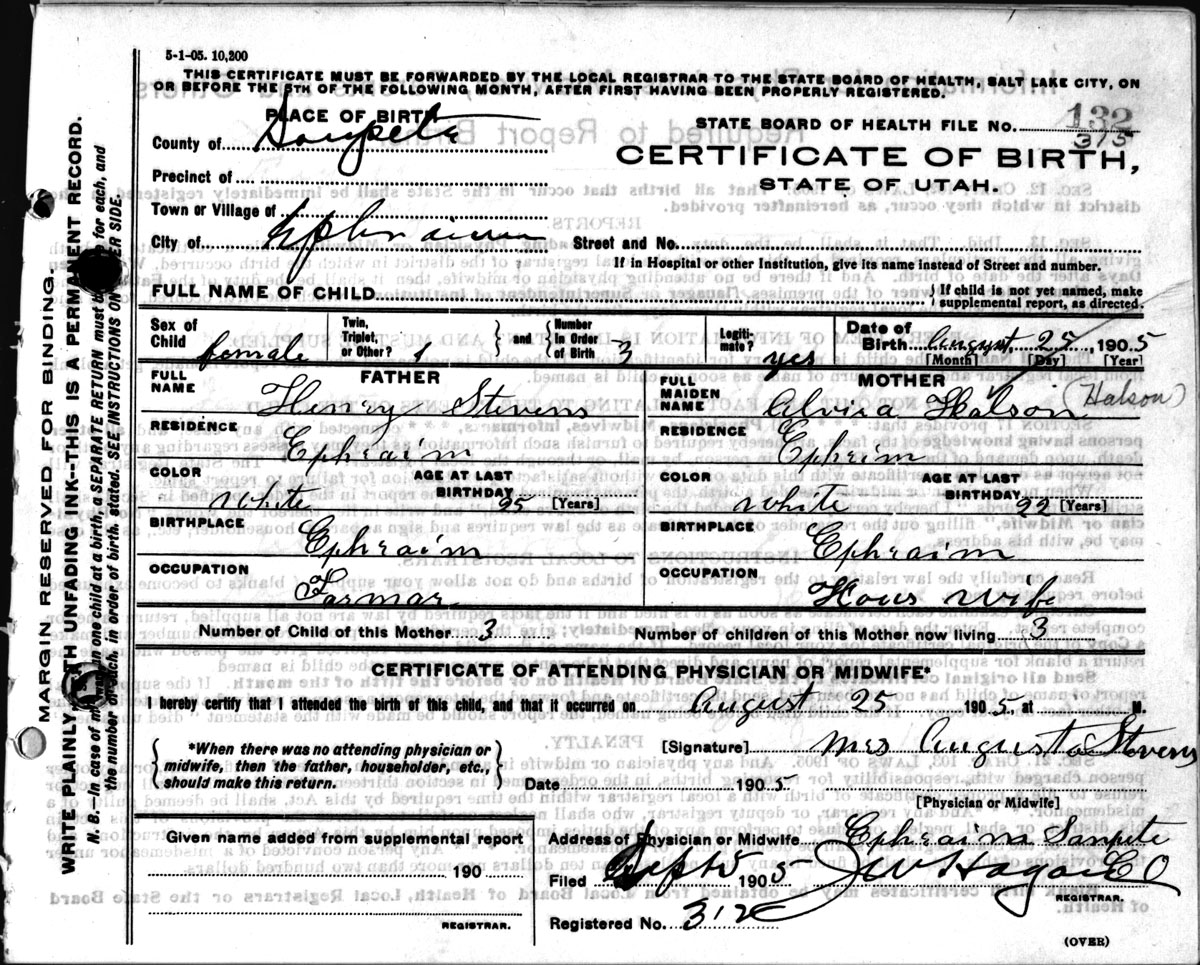 5-1-05. 10,200
THIS CERTIFICATE MUST BE FORWARDED BY THE LOCAL REGISTRAR TO THE STATE BOARD OF HEALTH, SALT LAKE CITY, ON
OR BEFORE THE 5TH OF THE FOLLOWING MONTH, AFTER FIRST HAVING BEEN PROPERLY REGISTERED.
PLACE OF BIRTH
County of Sanpete
Precinct of
Town or Village of
City of Ephraim
STATE BOARD OF HEALTH FILE NO. 132
315
CERTIFICATE OF BIRTH,
STATE OF UTAH.
Street and No.
If in Hospital or other Institution, give its name instead of Street and number.
FULL NAME OF CHILD
If child is not yet named, make
supplemental report, as directed.
Sex of Child female
Twin, Triplet, or Other? 1 and Number In Order of Birth 3
Legitimate? yes
Date of Birth August 25 1905
[Month] [Day] [Year]
FATHER
FULL NAME Henry Stevens
RESIDENCE Ephraim
COLOR white AGE AT LAST BIRTHDAY 25 [Years]
BIRTHPLACE Ephraim
OCCUPATION Farmar
MOTHER
FULL MAIDEN NAME Alvira Halson (Halson)
RESIDENCE Ephreim
COLOR white AGE AT LAST BIRTHDAY 22 [Years]
BIRTHPLACE Ephraim
OCCUPATION Hous wife
Number of Child of this Mother 3 Number of children of this Mother now living 3
CERTIFICATE OF ATTENDING PHYSICIAN OR MIDWIFE*
I hereby certify that I attended the birth of this child, and that it occurred on August 25 1905 at M.
*When there was no attending physician or
midwife, then the father, householder, etc.,
should make this return.
[Signature] Mrs Augusta Stevens
Date 1905
[Physician or Midwife]
Given name added from supplemental report
190
REGISTRAR.
Address of Physician or Midwife Ephraim Sanpete Co
Filed Sept 1905
REGISTRAR.
Registered No. 312
(OVER)
MARGIN RESERVED FOR BINDING.
WRITE PLAINLY WITH UNFADING INK--THIS IS A PERMANENT RECORD.
N. B.--In case of more than one child at a birth, a SEPARATE RETURN must be made for each, and
the number of each, in order of birth, stated. SEE INSTRUCTIONS ON OTHER SIDE.